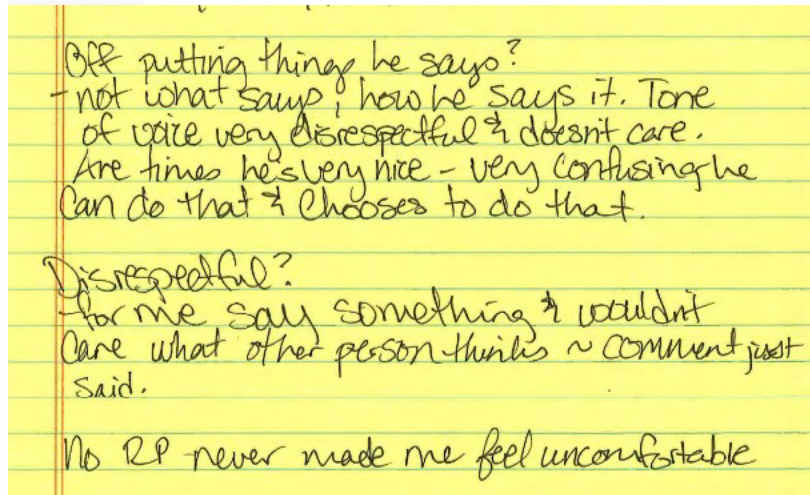 Off putting things he says?
- not what says, how he says it. Tone
of voice very disrespectful & doesn't care.
Are times he's very nice - very confusing he
can do that & chooses to do that.
Disrespectful?
- for me say something & wouldn't
care what other person thinks ~ comment just
said.
No RP never made me feel uncomfortable